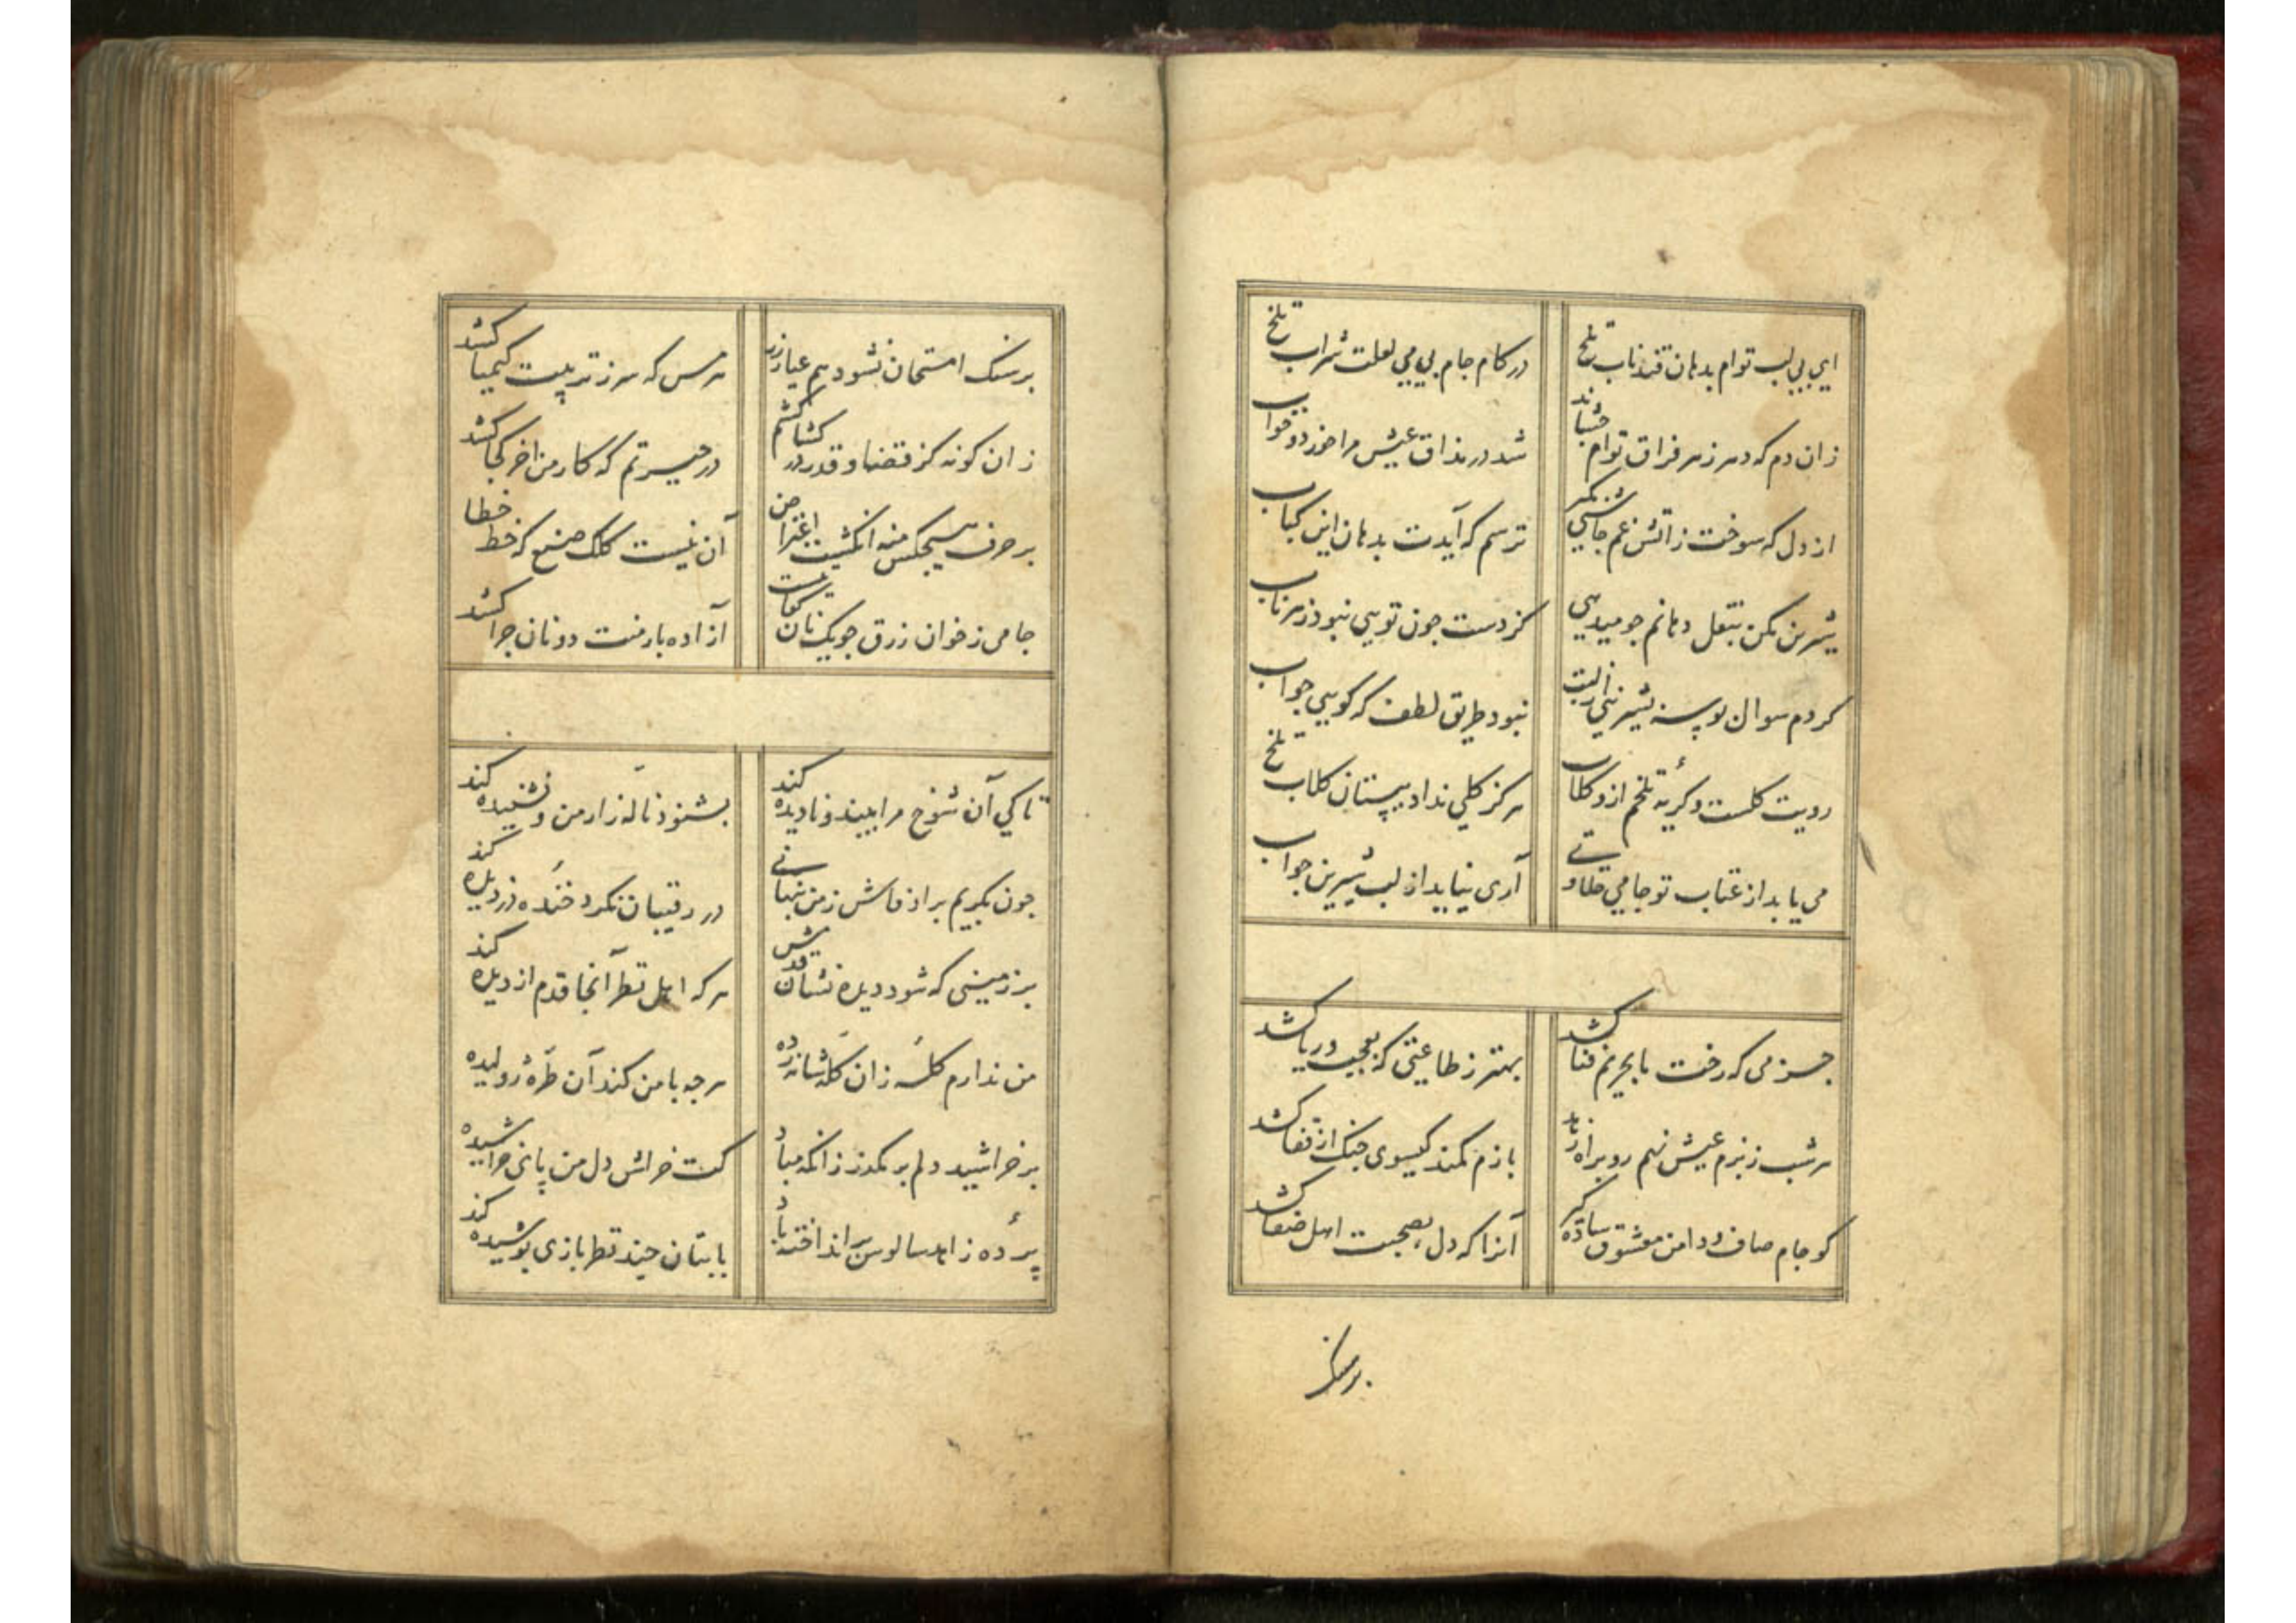 ای بی لب توام بدهان قند ناب تلخ
در کام جام بی می لعلت شراب تلخ
زان دم که دهر زهر فراق توام چشاند
شد در مذاق عیش مرا خورد و خواب
از دل که سوخت زاتش غم چاشنی مگیر
ترسم که آیدت بدهان این کباب
شیرین مکن بنقل دهانم جو میدهی
کز دست جون تویی نبود زهر ناب
کردم سوال بوسه شیرینی از لبت
نبود طریق لطف که گویی جواب
رویت کلست و کریهٔ تلخم ازو کلاب
هرکز کلی نداد بپستان کلاب تلخ
می یابد از عتاب تو جامی حلاوتی
آری نیاید از لب شیرین جواب
جز می که رخت ما بحریم فنا کشد
بهتر ز طاعتی که بعجب و ریا کشد
هر شب ز بزم عیش نهم رو براه زهد
بازم کمند کیسوی جنک از قفا کشد
کو جام صاف و دامن معشوق ساده کیر
آنرا که دل بصحبت اهل صفا کشد
بر سنک
بر سنک امتحان نشود هم عیار زر
هر مس که سر ز تربیت کیمیا کشد
زان کونه کز قضا و قدر در کشاکشم
در حیرتم که کار من اخر کجا کشد
بر حرف هیچکس منه انکشت اعتراض
آن نیست کلک صنع که خط خطا
جامی ز خوان رزق جو یک نان کفات است
آزاده بار منت دونان چرا کشد
تا کی آن شوخ مرا بیند و نادیده کند
بشنود نالهٔ زار من و نشنیده کند
جون بکریم بر او فاش ز من پنهانی
در رقیبان نکرد خنده دزدیده کند
بر زمینی که شود دیده نشان قدمش
هر که اهل نظر آنجا قدم از دیده کند
من ندارم کله زان کله شانه زده
هر جه با من کند آن طره ژولیده
بر خراشید دلم بر مکذر زانکه مباد
کت خراش دل من پای خراشیده
پرده زاهد سالوس بر انداخته باد
با بتان چند نظر بازی پوشیده کند